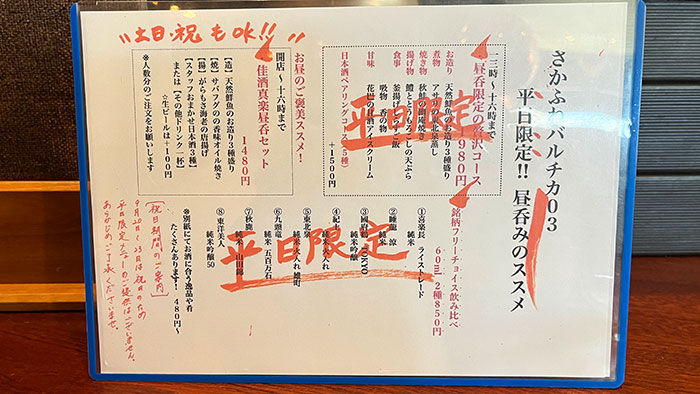 バルチカ03
平日限定!! 昼呑みのススメ
昼呑限定の贅沢コース
980円
三時～十六時まで
お造り 天然鮮魚のお造り3種盛り
煮物 アサリの東北泉蒸し
焼き物 秋鮭の幽庵焼き
揚げ物 鱧ととうもろこしの天ぷら
食事 釜揚げしらすご飯
吸物 香の物
甘味 花巴の甘酒アイスクリーム
日本酒ペアリングコース(5種)
+1500円
平日限定
"土日・祝 も OK!!"
お昼のご褒美ススメ!
佳酒真楽昼呑セット
1480円
開店～十六時まで
【造】天然鮮魚のお造り3種盛り
【焼】サバフグの香味オイル焼き
【揚】がらもさ海老の唐揚げ
【スタッフおまかせ日本酒3種】
または【その他ドリンク一杯】
☆生ビールは+100円
※人数分のご注文をお願いします
銘柄フリーチョイス飲み比べ
60ml 2種850円
①喜楽長 ライストレード
純米
②睡龍 涼
純米
③ TOKYO
純米吟醸
④紀土
純米 火入れ
⑤東北泉
純米 火入れ 雄町
⑥九頭竜
純米 五百万石
⑦秋鹿
純米 山田錦
⑧東洋美人
純米吟醸50
平日限定
※別紙にてお酒に合う逸品や肴
たくさんあります! 480円～
【祝日期間のご案内】
9月20日～23日は祝日のため
平日限定メニューのご提供はございません。
あらかじめご了承くださいませ。